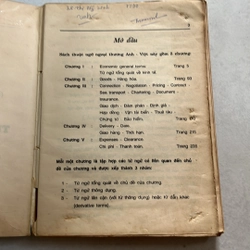 Mở đầu
Sách thuật ngữ ngoại thương Anh - Việt này gồm 5 chương
Chương I : Economic general terms. Trang 5
Từ ngữ tổng quát về kinh tế.
Chương II : Goods - Hàng hóa. Trang
Chương III : Connection - Negotiation - Pricing - Contract -
Sea transport - Chartering - Document -
Insurance.
Giao dịch - Đàm phán - Định giá -
Hợp đồng - Vận tải biển - Thuê tàu -
Chứng từ - Bảo hiểm. Trang
Chương IV : Delivery - Date.
Giao hàng - Thời hạn. Trang
Chương V : Expenses - Clearance.
Chi phí - Thanh toán. Trang
Mỗi một chương là tập hợp các từ ngữ có liên quan đến chủ
đề của chương và được xếp thành 3 nhóm:
1 - Từ ngữ tổng quát về chủ đề của chương.
2 - Từ ngữ thông dụng.
3 - Từ ngữ lân cận (với từ thông dụng) hoặc từ dẫn xuất
(derivative terms).